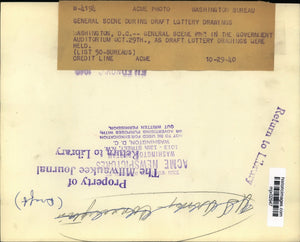 W-4194 ACME PHOTO WASHINGTON BUREAU
GENERAL SCENE DURING DRAFT LOTTERY DRAWINGS
WASHINGTON, D.C.-- GENERAL SCENE IN THE GOVERNMENT
AUDITORIUM OCT.29TH., AS DRAFT LOTTERY DRAWINGS WERE
HELD.
(LIST 50-BUREAUS)
CREDIT LINE ACME 10-29-40
Return to Library
ACME NEWSPICTURES
WASHINGTON
1013 - 13th STREET, N.W.
WASHINGTON, D. C.
OUT WRITTEN PERMISSION.
Property of
The Milwaukee Journal
Return to Library
(Draft)
U.S. Army